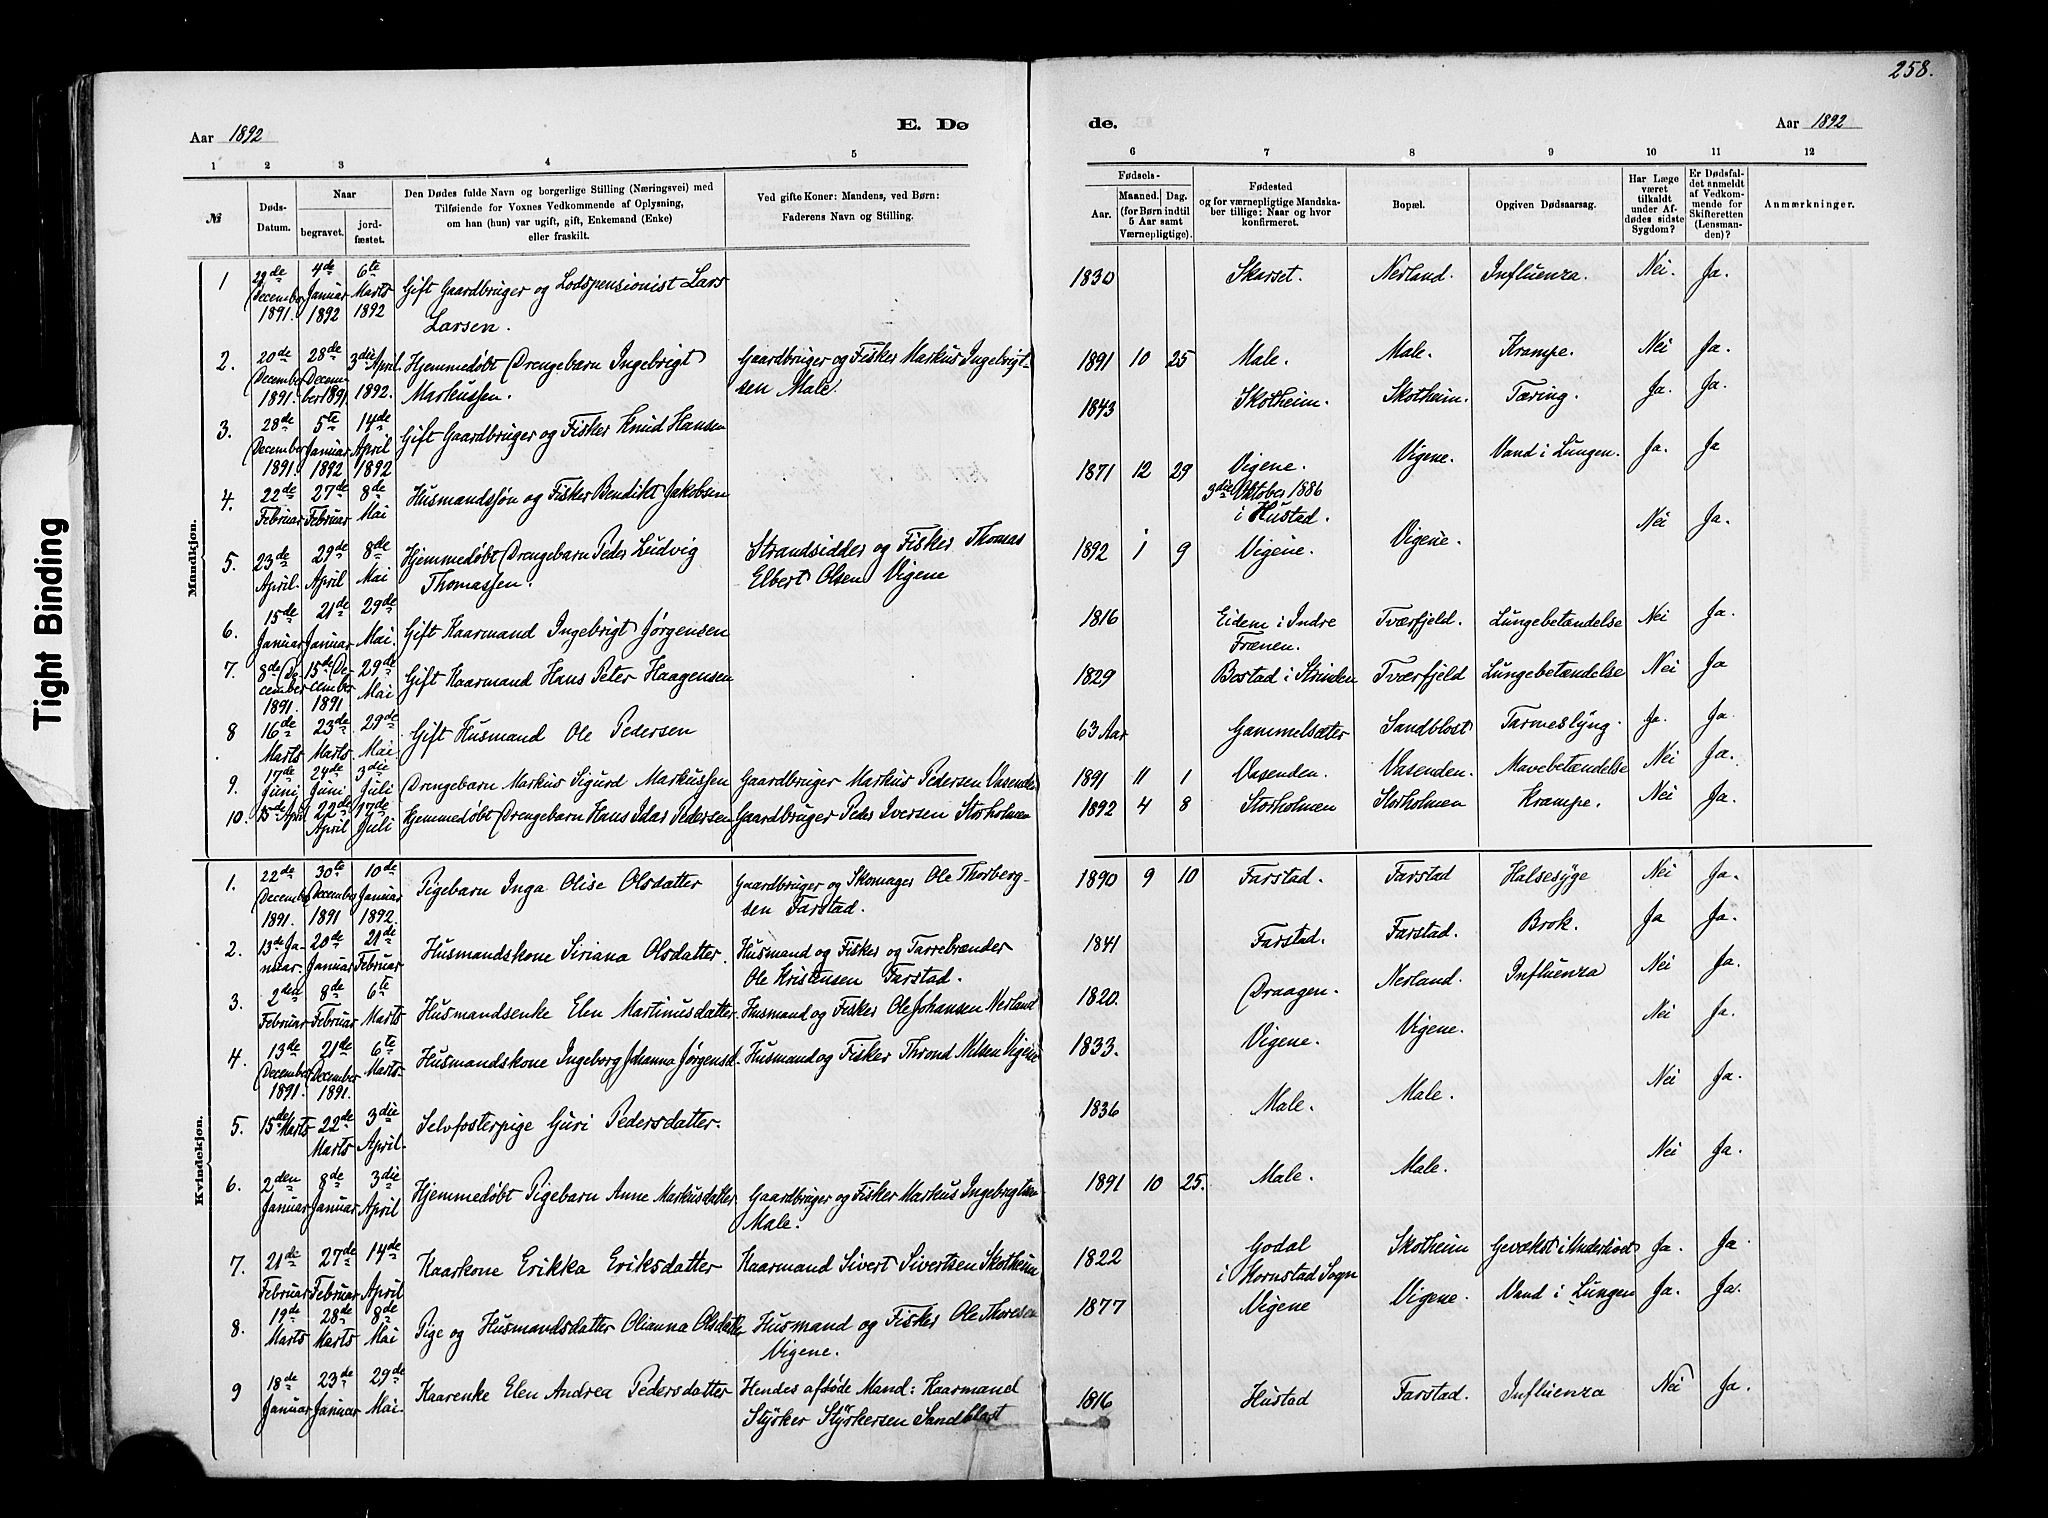 258.
Aar 1892
E. Dø
de.
Aar 1892
1 2 3 4 5 6 7 8 9 10 11 12
№
Døds-Datum.
Naar
begravet.
jord-fæstet.
Den Dødes fulde Navn og borgerlige Stilling (Næringsvei) med
Tilføiende for Voxnes Vedkommende af Oplysning,
om han (hun) var ugift, gift, Enkemand (Enke)
eller fraskilt.
Ved gifte Koner: Mandens, ved Børn:
Faderens Navn og Stilling.
Fødsels-
Aar.
Maaned. Dag.
(for Børn indtil
5 Aar samt
Værnepligtige).
Fødested
og for værnepligtige Mandska-
ber tillige: Naar og hvor
konfirmeret.
Bopæl.
Opgiven Dødsaarsag.
Har Læge
været
tilkaldt
under Af-
dødes sidste
Sygdom?
Er Dødsfal-
det anmeldt
af Vedkom-
mende for
Skifteretten
(Lensman-
den)?
Anmærkninger.
Mandkjøn.
1 29de December 1891. 4de Januar 1892 6te Marts 1892 Gift Gaardbruger og Lodspensionist Lars Larsen. 1830 Skarset. Nerland. Influenza. Nei. Ja.
2. 20de December 1891. 28de December 1891. 3die April 1892. Hjemmedøbt Drengebarn Ingebrigt Markussen. Gaardbruger og Fisker Markus Ingebrigt-sen Male. 1891 10 25 Male. Male. Krampe. Nei Ja.
3. 28de December 1891. 5te Januar 1892 14de April 1892 Gift Gaardbruger og Fisker Knud Hansen 1843 Skotheim. Skotheim. Tæring. Ja. Ja.
4. 22de Februar 27de Februar 8de Mai Husmandssøn og Fisker Bendikt Jakobsen 1871 12 29 Vigene. 3die Oktober 1886 i Hustad. Vigene. Vand i Lungen. Ja. Ja
5. 23de April. 29de April 8de Mai Hjemmedøbt Drengebarn Peder Ludvig Thomassen. Strandsidder og Fisker Thomas Elbert Olsen Vigene 1892 1 9 Vigene. Vigene. Nei Ja.
6. 15de Januar 21de Januar 29de Mai. Gift Kaarmand Ingebrigt Jørgensen 1816 Eidem i Indre Frænen. Tværfjeld. Lungebetændelse Nei Ja.
7. 8de December 1891. 15de December 1891 29de Mai Gift Kaarmand Hans Peter Haagensen 1829 Bostad i Strinden Tværfjeld Lungebetændelse Nei Ja
8 16de Marts 23de Marts. 29de Mai. Gift Husmand Ole Pedersen 63 Aar Gammelsæter Sandblost Tarmeslyng. Ja. Ja.
9. 17de Juni 24de Juni 3die Juli Drengebarn Markus Sigurd Markussen Gaardbruger Markus Pedersen Vasenden 1891 11 1 Vasenden. Vasenden. Mavebetændelse Nei Ja.
10. 15de April 22de April 17de Juli Hjemmedøbt Drengebarn Hans Idar Pedersen Gaardbruger Peder Iversen Storholmen 1892 4 8 Storholmen Storholmen Krampe. Nei Ja.
Kvindekjøn.
1. 22de December 1891. 30te December 1891 10de Januar 1892. Pigebarn Inga Olise Olsdatter Gaardbruger og Skomager Ole Thorberg-sen Farstad. 1890 9 10 Farstad. Farstad Halsesyge Nei Ja.
2. 13de Januar. 20de Januar 21de Februar Husmandskone Siriana Olsdatter. Husmand og Fisker og Tarrebrænder Ole Kristensen Farstad. 1841 Farstad. Farstad. Brok. Ja Ja.
3. 2den Februar 8de Februar 6te Marts Husmandsenke Elen Martinusdatter. Husmand og Fisker Ole Johansen Nerland 1820. Draagen. Nerland. Influenza Nei Ja.
4. 13de December 1891. 21de December 1891. 6te Marts. Husmandskone Ingeborg Johanna Jørgensd. Husmand og Fisker Thrond Nilsen Vigene 1833. Vigene. Vigene. Nei Ja.
5. 15de Marts 22de Marts 3die April. Selvfosterpige Guri Pedersdatter. 1836 Male. Male. Nei Ja.
6. 2den Januar 8de Januar 3die April Hjemmedøbt Pigebarn Anne Markusdatter Gaardbruger og Fisker Markus Ingebrigtsen Male. 1891 10 25. Male. Male. Nei Ja.
7. 21de Februar 27de Februar 14de April Kaarkone Erikka Eriksdatter Kaarmand Sivert Sivertsen Skotheim 1822 Godal i Kornstad Sogn Skotheim Gevækst i Underlivet Ja. Ja
8. 19de Marts 28de Marts 8de Mai Pige og Husmandsdatter Olianna Olsdatter Husmand og Fisker Ole Thoresen Vigene. 1877 Vigene Vigene. Vand i Lungen Ja. Ja.
9 18de Januar 23de Januar 29de Mai. Kaarenke Elen Andrea Pedersdatter Hendes afdøde Mand: Kaarmand Styrker Styrkersen Sandblost 1816 Hustad Farstad. Influenza Nei Ja.
Tight Binding